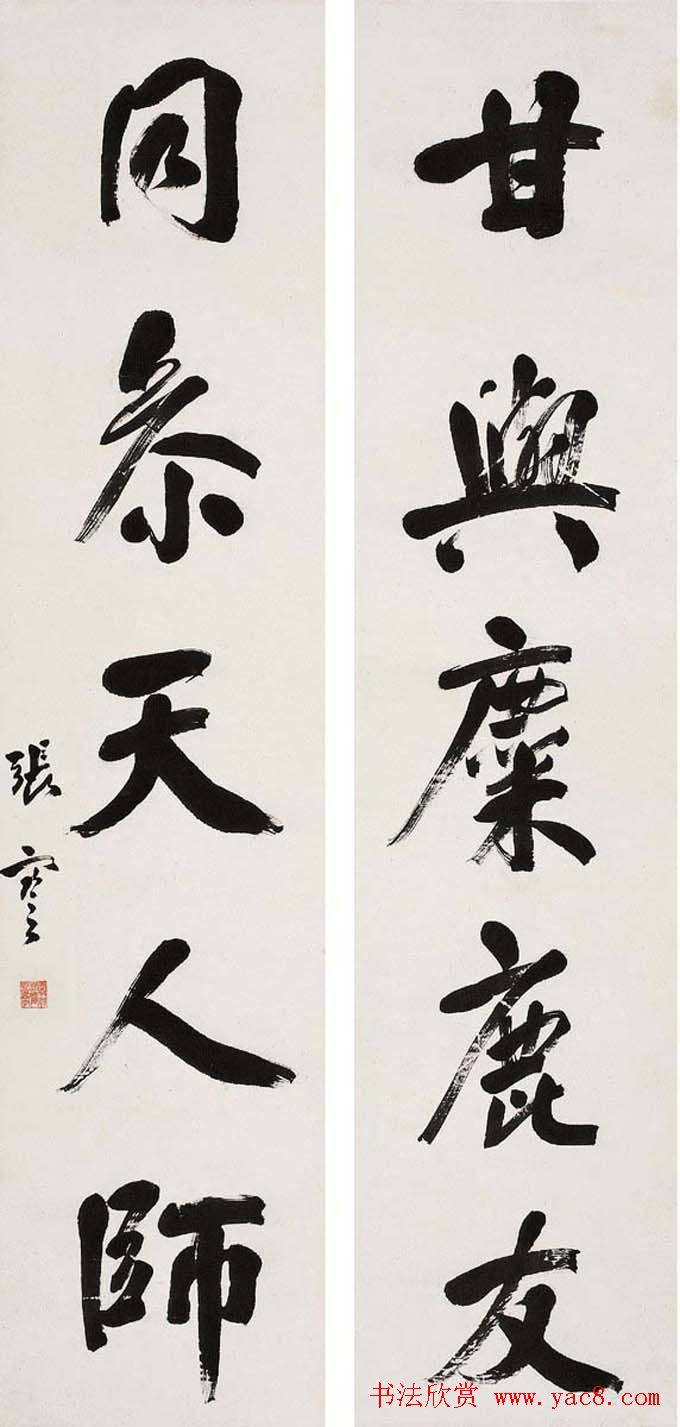 甘與麋鹿友
同条天人師
張謇
书法欣赏 www.yac8.com